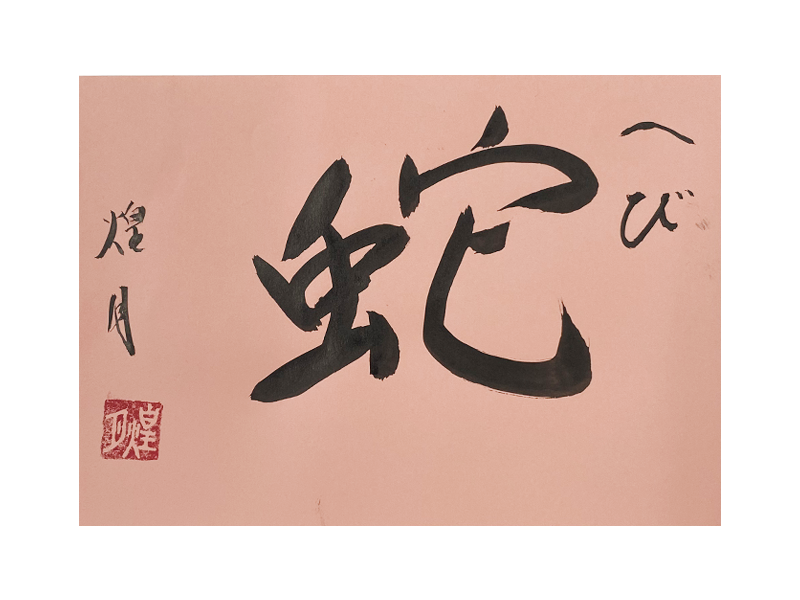 へび
蛇
煌月
煌月